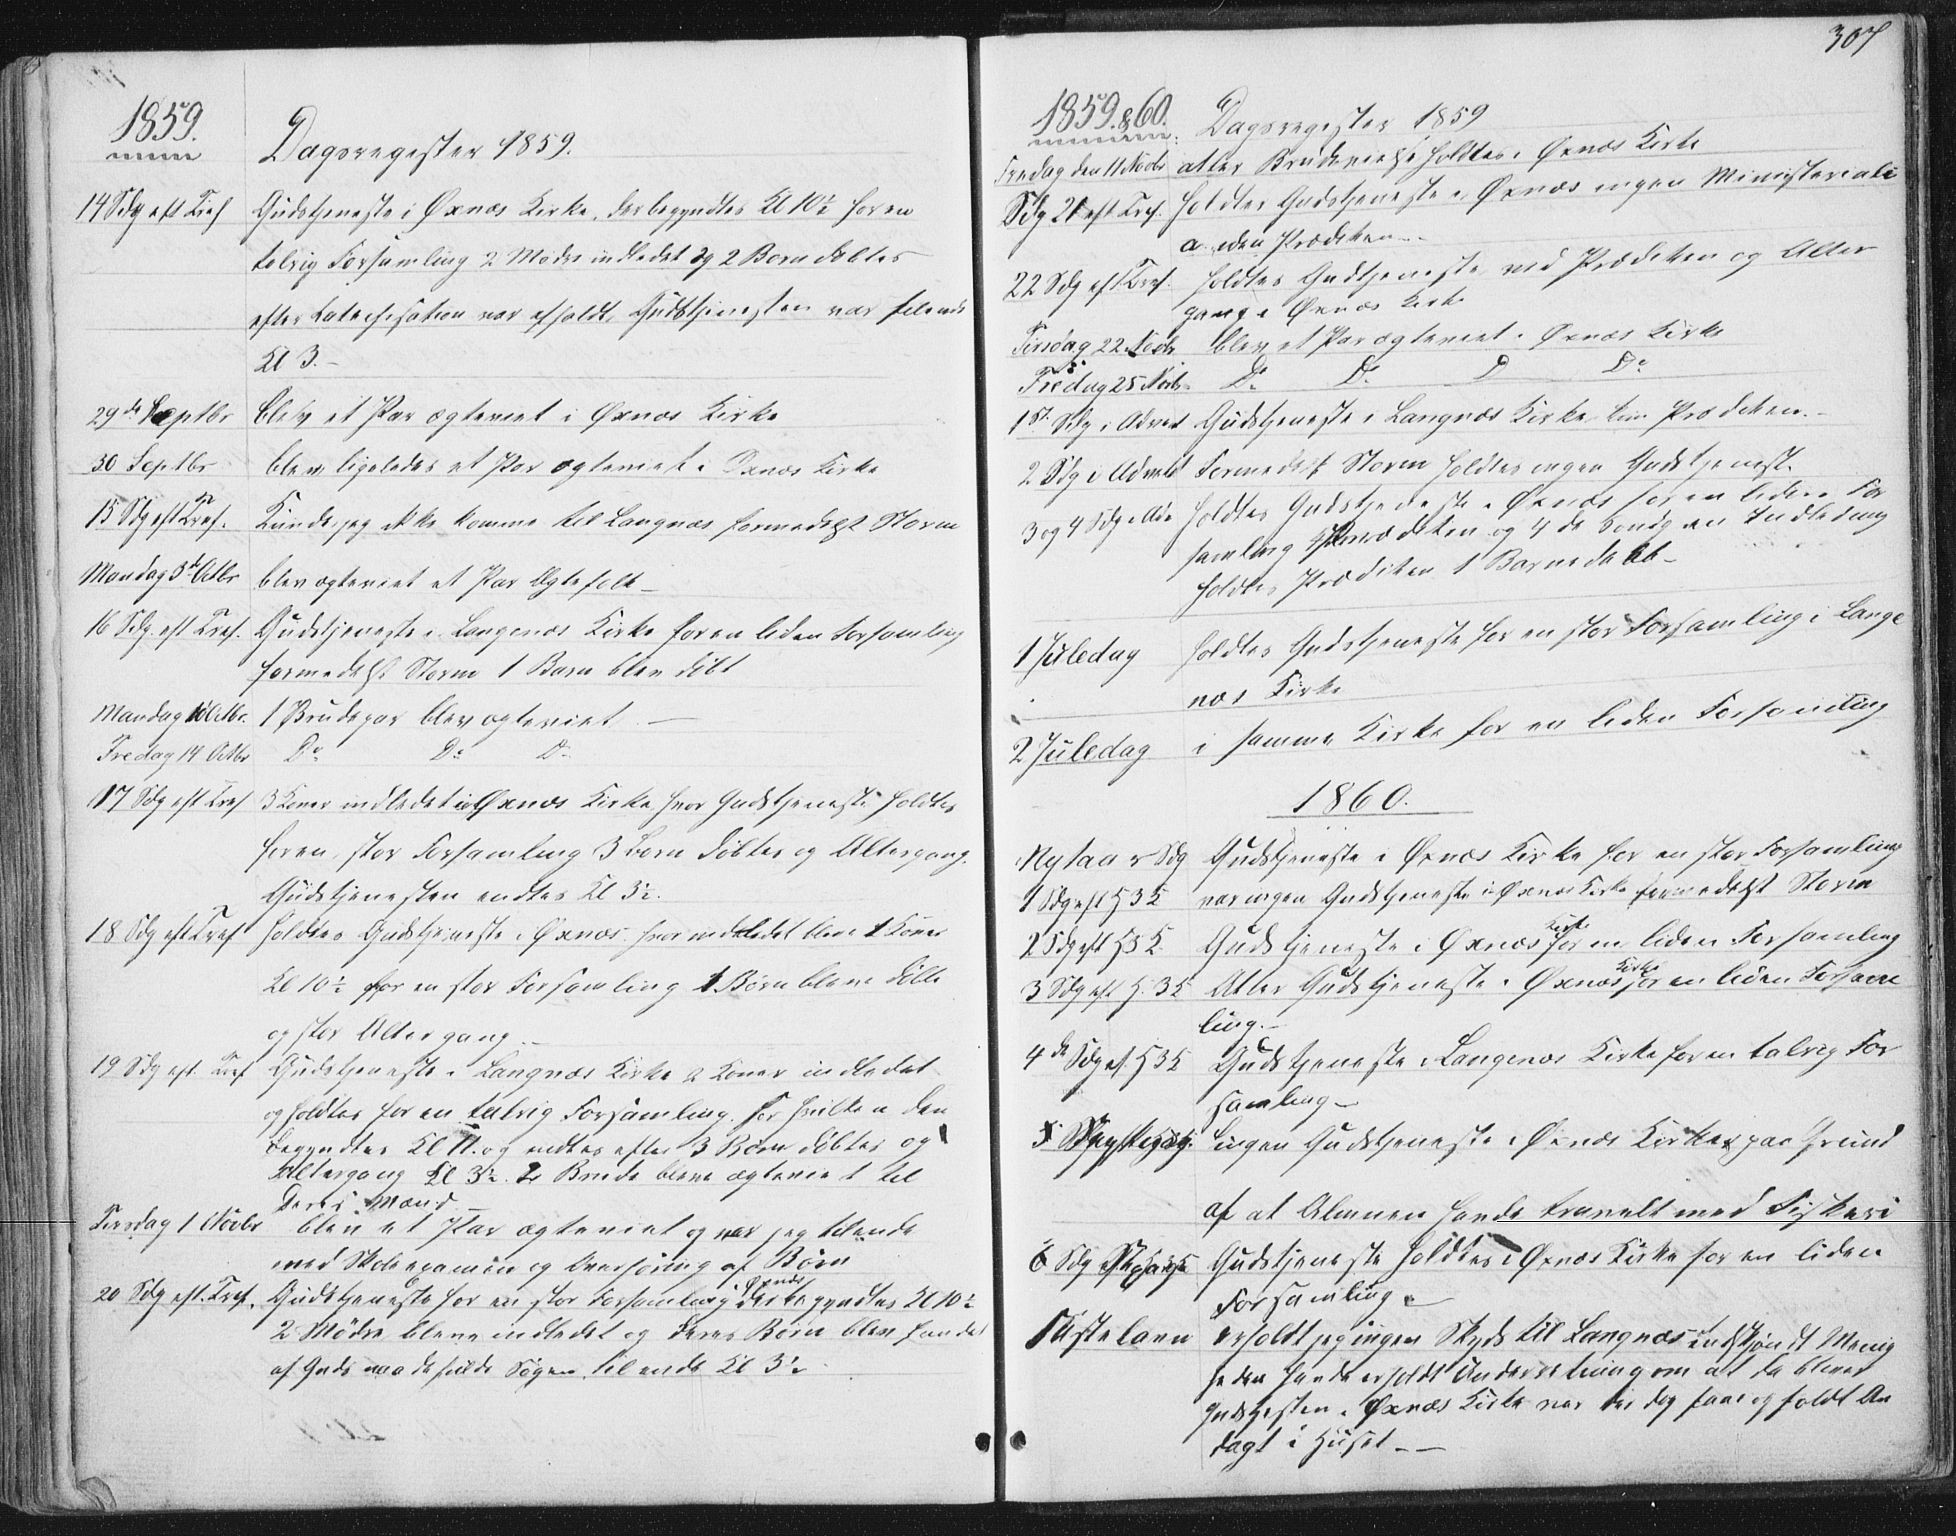 1859.
Dagsregister 1859.
14 Sdg eft Tref Gudstjeneste i Øxnæs Kirke, der begyndtes Kl 10½ for en
talrig Forsamling 2 Mødre indledet og 2 Børn døbtes
efter Catechisation var afholdt, Gudstjenesten var tilende
Kl 3.-
29de Septbr blev et Par ægteviet i Øxnæs Kirke
30 Septbr blev ligeledes et Par ægteviet i Øxnæs Kirke
15 Sdg eft Tref. Kunde jeg ikke komme til Langnæs formedelst Storm
Mandag 3d Octbr blev ægteviet et Par Ægtefolk -
16 Sdg. eft Tref. Gudstjeneste i Langenæs Kirke for en liden Forsamling
formedelst Storm 1 Barn blev døbt
Mandag 10 Octbr. 1 Brudepar blev ægteviet -
Fredag 14 Octbr Do Do Do
17 Sdg eft Tref 3 Koner indledet i Øxnæs Kirke, hvor Gudstjeneste holdtes
for en stor Forsamling 3 Børn døbtes og Altergang.
Gudstjenesten endtes Kl 3½.
18 Sdg eft Tref holdtes Gudstjeneste i Øxnæs hvor indledet blev 1 Koner
Kl 10½ for en stor Forsamling 1 Børn bleve døbte
og stor Altergang.-
19 Sdg eft. Tref Gudstjeneste i Langnæs Kirke 2 Koner indledet
og holdtes for en talrig Forsamling. for hvilken den
begyndtes Kl 11. og endtes efter 3 Børn døbtes og
Altergang Kl 3½. 2 Brude bleve ægteviet til
Deres Mænd -
Tirsdag 1 Novbr blev et Par ægteviet og var jeg tilende
med Skoleexamen og Overhøring af Børn
20 Sdg eft. Tref. Gudstjeneste for en stor Forsamling i Øxnæs der begyndtes Kl 10½
2 Mødre bleve indledet og deres Børn blev
af Guds naadefulde tilende Kl 3½
307
1859. & 60. Dagsregister 1859
Fredag den 11 Novbr atter Brudevielse holdtes i Øxnæs Kirke
Sdg 21 eft Tref. holdtes Gudstjeneste i Øxnæs ingen Ministeriali
a. uden Prædiken. -
22 Sdg eft Tref. holdtes Gudtjeneste med Prædiken og Alter
gang i Øxnæs Kirke
Tirsdag 22 Novbr blev et Par ægteviet i Øxnæs Kirke
Fredag 25 Novbr Do Do D Do
1st Sdg i Advent Gudstjeneste i Langnæs Kirke kun Prædiken. -
2 Sdg i Advent Formedelst Storm holdtes ingen Gudstjeneste.
3 og 4 Sdg i Adv holdtes Gudstjeneste i Øxnæs for en liden For
samling Prædiken og 4de Søndg en Indledning
holdtes Prædiken 1 Barnedaab -
1 Juledag holdtes Gudstjeneste for en stor Forsamling i Lange
næs Kirke
2 Juledag i samme Kirke for en liden Forsamling
1860.
Nytaars Sdg Gudstjeneste i Øxnæs Kirke for en stor Forsamling
1 Sdg eft H3K var ingen Gudstjeneste i Øxnæs Kirke formedelst Storm
2 Sdg eft H3K. Gudstjeneste i Øxnæs Kirke for en liden Forsamling
3 Sdg eft H.3K Atter Gudstjeneste i Øxnæs Kirke for en liden Forsam
ling. -
4de Sdg ef. H3K Gudstjeneste i Langenæs Kirke for en talrig For
samling -
5 ingen Gudstjeneste i Øxnæs Kirke paa Grund
af at Almuen havde travelt med Fiskeri
6 Sdg Gudstjeneste holdtes i Øxnæs Kirke for en liden
Forsamling -
Fastelavn erholdt jeg ingen Skyds til Langnæs endskjøndt Menig
heden havde erholdt Underretning om at da blev
Gudstjesten i Øxnæs Kirke var der dog faae og holdt An
dagt i Huset - -